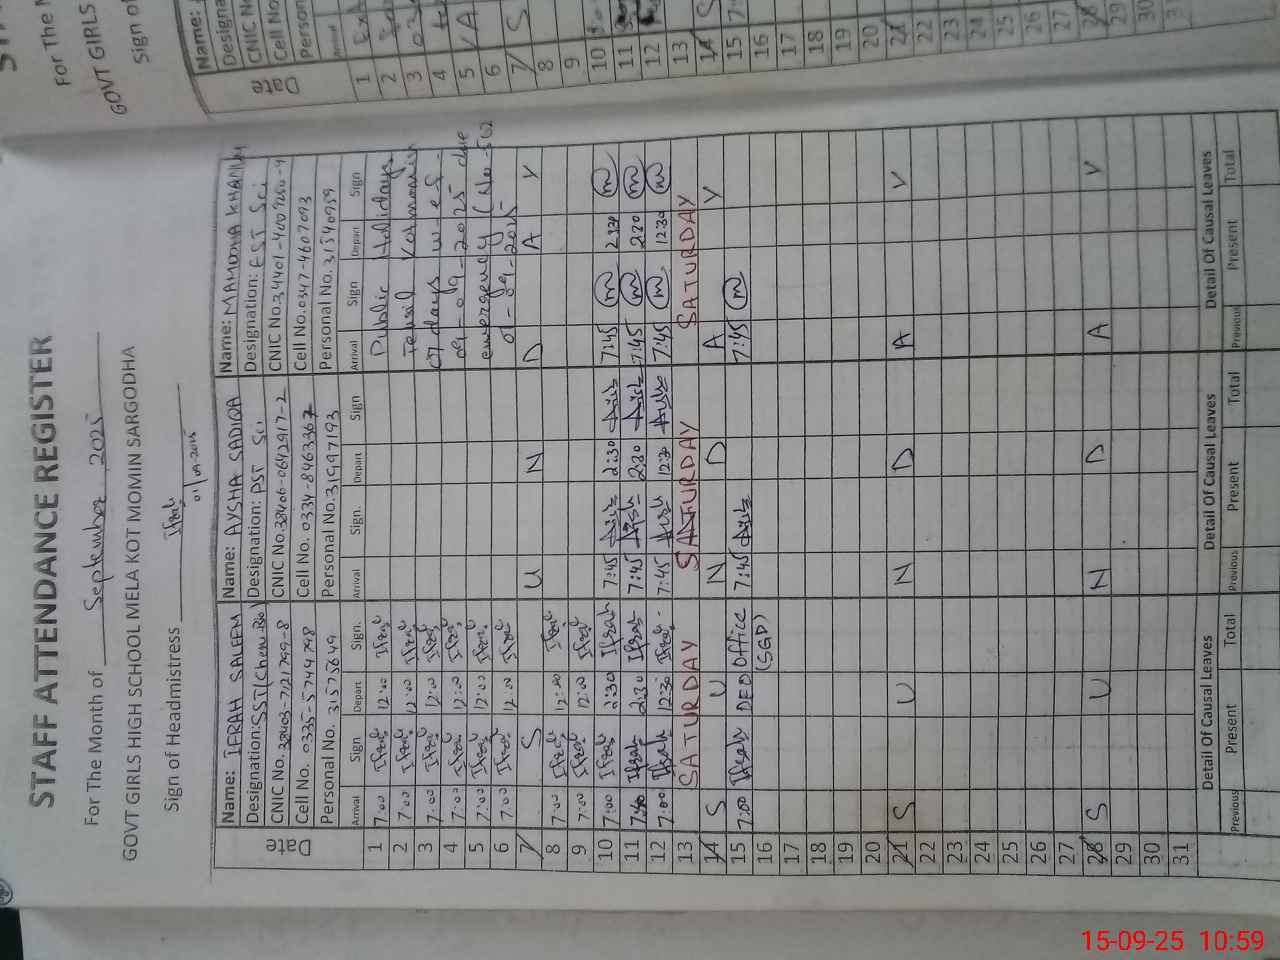 STAFF ATTENDANCE REGISTER
For The Month of September 2025
GOVT GIRLS HIGH SCHOOL MELA KOT MOMIN SARGODHA
Sign of Headmistress Ifrah
Date
Name: IFRAH SALEEM
Designation: SST (Chem-Bio)
Cell No. 0335-5744798
Personal No. 31573649
Name: AYSHA SADIQA
Designation: PST Sci
CNIC No. 38406-0642917-2
Cell No. 0334-8463367
Personal No. 31597193
Name: MAMONA KHANUM
Designation: EST Sci
CNIC No. 34401-4009250-4
Cell No. 0347-4607093
Personal No. 31540959
Arrival Sign Depart Sign. Arrival Sign. Depart Sign Arrival Sign Depart Sign
1 7:00 Ifrah 12:00 Ifrah Public Holidays
2 7:00 Ifrah 12:00 Ifrah Tehsil Kotmomin
3 7:00 Ifrah 12:00 Ifrah 07 days w.e.f.
4 7:00 Ifrah 12:00 Ifrah 09-2025 due
5 7:00 Ifrah 12:00 Ifrah emergency (No-502
6 7:00 Ifrah 12:00 Ifrah
7 S U N D A Y
8 7:00 Ifrah 12:00 Ifrah
9 7:00 Ifrah 12:00 Ifrah
10 7:00 Ifrah 2:30 Ifrah 7:45 Aish 2:30 Aish 7:45 m 2:30 m
11 7:40 Ifrah 2:30 Ifrah 7:45 Aish 2:30 Aish 7:45 m 2:30 m
12 7:00 Ifrah 12:30 Ifrah 7:45 Aish 12:30 Aish 7:45 m 12:30 m
13 SATURDAY SATURDAY SATURDAY
14 S U N D A Y
15 7:00 Ifrah DEO Office 7:45 Aish 7:45 m
16 (SGD)
17
18
19
20
21 S U N D A V
22
23
24
25
26
27
28 S U N D A V
29
30
31
Detail Of Causal Leaves Detail Of Causal Leaves Detail Of Causal Leaves
Previous Present Total Previous Present Total Previous Present Total
For The M
GOVT GIRLS
Sign of
Name:
Designa
CNIC No
Cell No
Person
Date
1
2
3
4
5
6
7 S
8
9
10
11
12
13
14 S
15
16
17
18
19
20
21
22
23
24
25
26
27
28
29
30
31
15-09-25 10:59